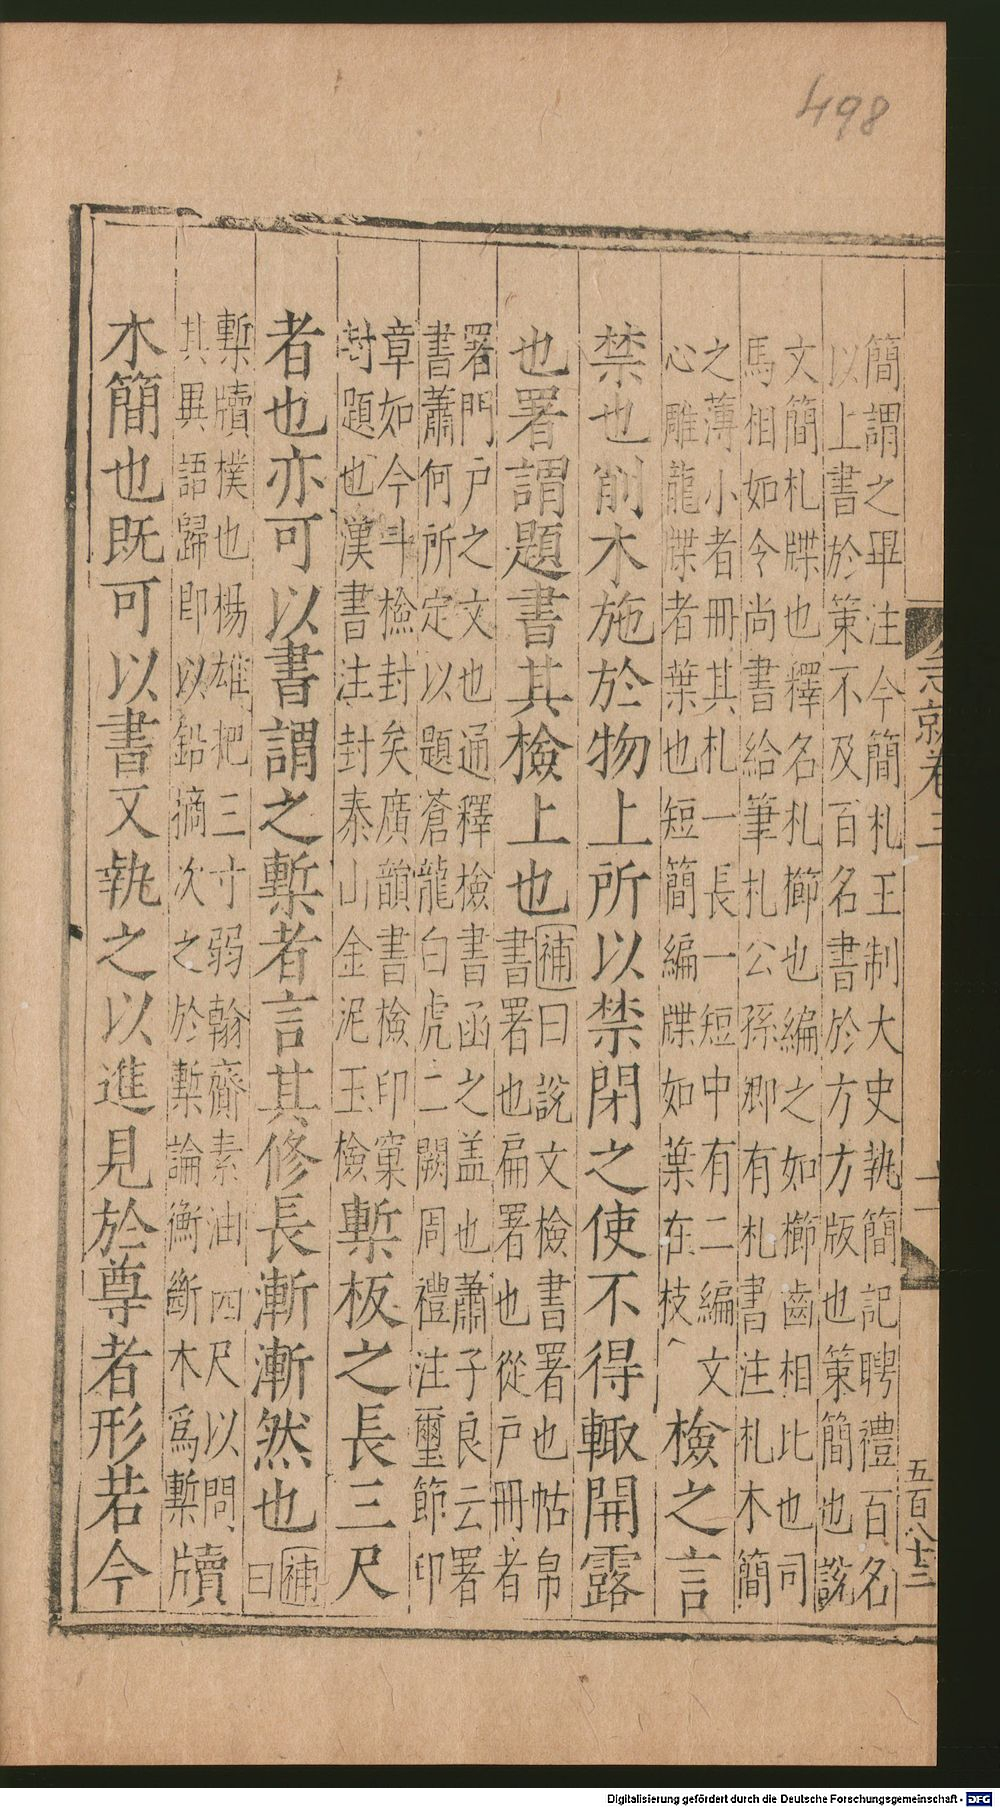 498
急就卷三
十一
五百八十二
簡謂之畢注今簡札王制大史執簡記聘禮百名
以上書於策不及百名書於方方版也策簡也說
文簡札牒也釋名札櫛也編之如櫛齒相比也司
馬相如令尚書給筆札公孫卿有札書注札木簡
之薄小者冊其札一長一短中有二編文
心雕龍牒者葉也短簡編牒如葉在枝
檢之言
禁也削木施於物上所以禁閉之使不得輒開露
也署謂題書其檢上也
補曰說文檢書署也帖帛
書署也扁署也從戶冊者
署門戶之文也通釋檢書函之盖也蕭子良云署
書蕭何所定以題蒼龍白虎二闕周禮注璽節印
章如今斗檢封矣廣韻書檢印窠
封題也漢書注封泰山金泥玉檢
槧板之長三尺
者也亦可以書謂之槧者言其修長漸漸然也
補曰
槧牘樸也楊雄把三寸弱翰齎素油四尺以問
其異語歸即以鉛摘次之於槧論衡斷木為槧
牘
木簡也既可以書又執之以進見於尊者形若今
Digitalisierung gefördert durch die Deutsche Forschungsgemeinschaft - DFG